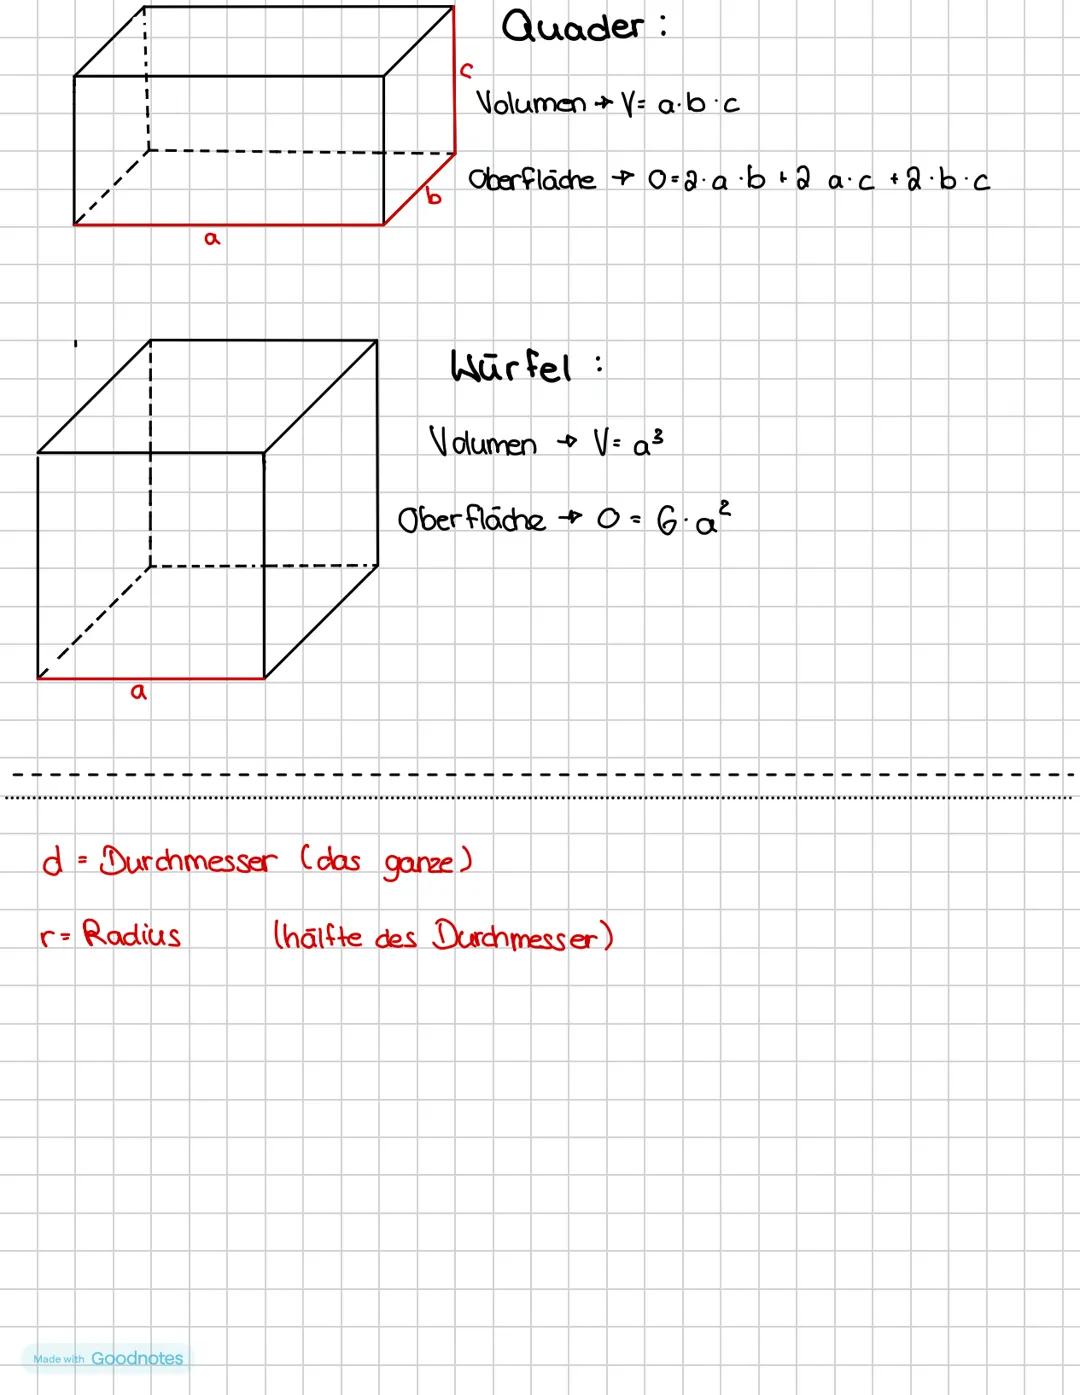 Quader :
c
Volumen → V= a·b·c
Oberfläche → O=2·a·b+2 a·c+2·b·c
b
a
Würfel :
Volumen → V= a³
Oberfläche → O = 6·a²
a
d = Durchmesser (das ganze)
r= Radius (hälfte des Durchmesser)
Made with Goodnotes